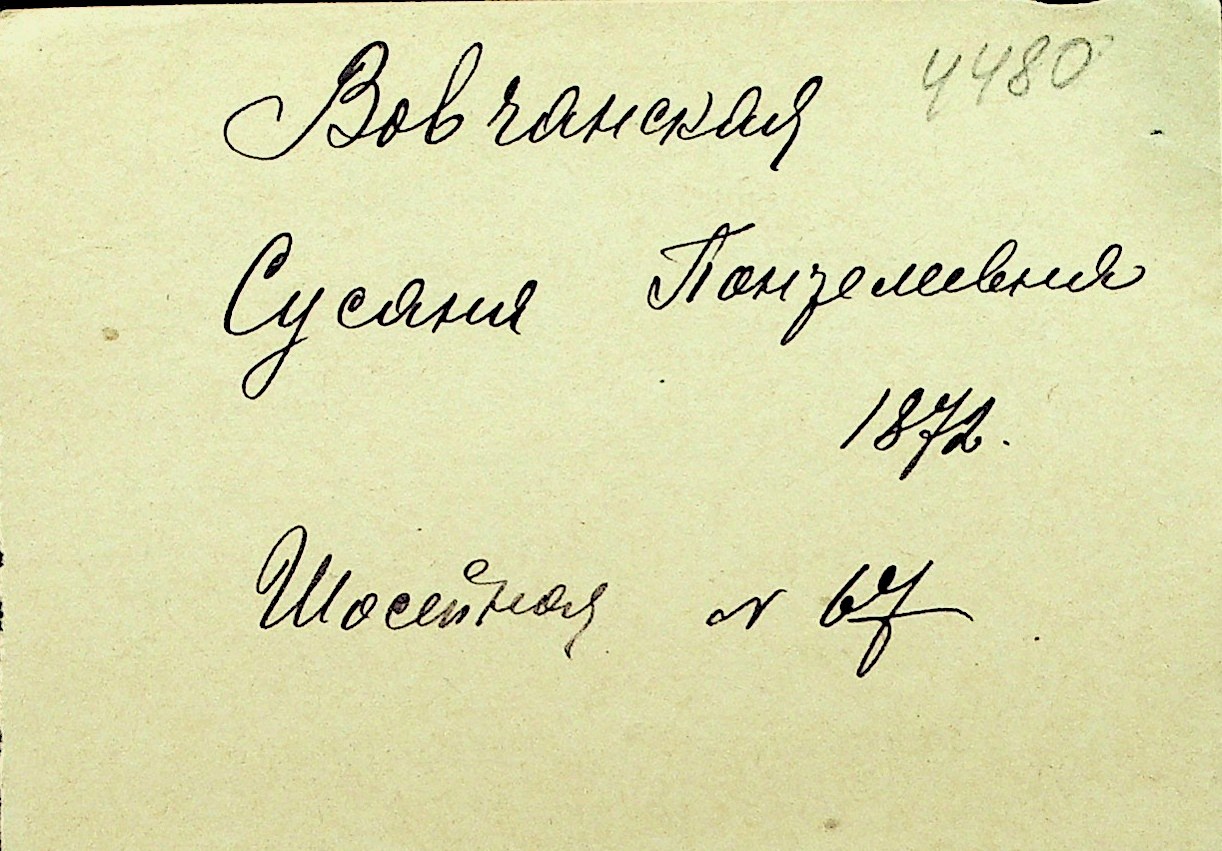 4480
Вовчанская
Сусаня Понзелевня
1872.
Шосейная N 67